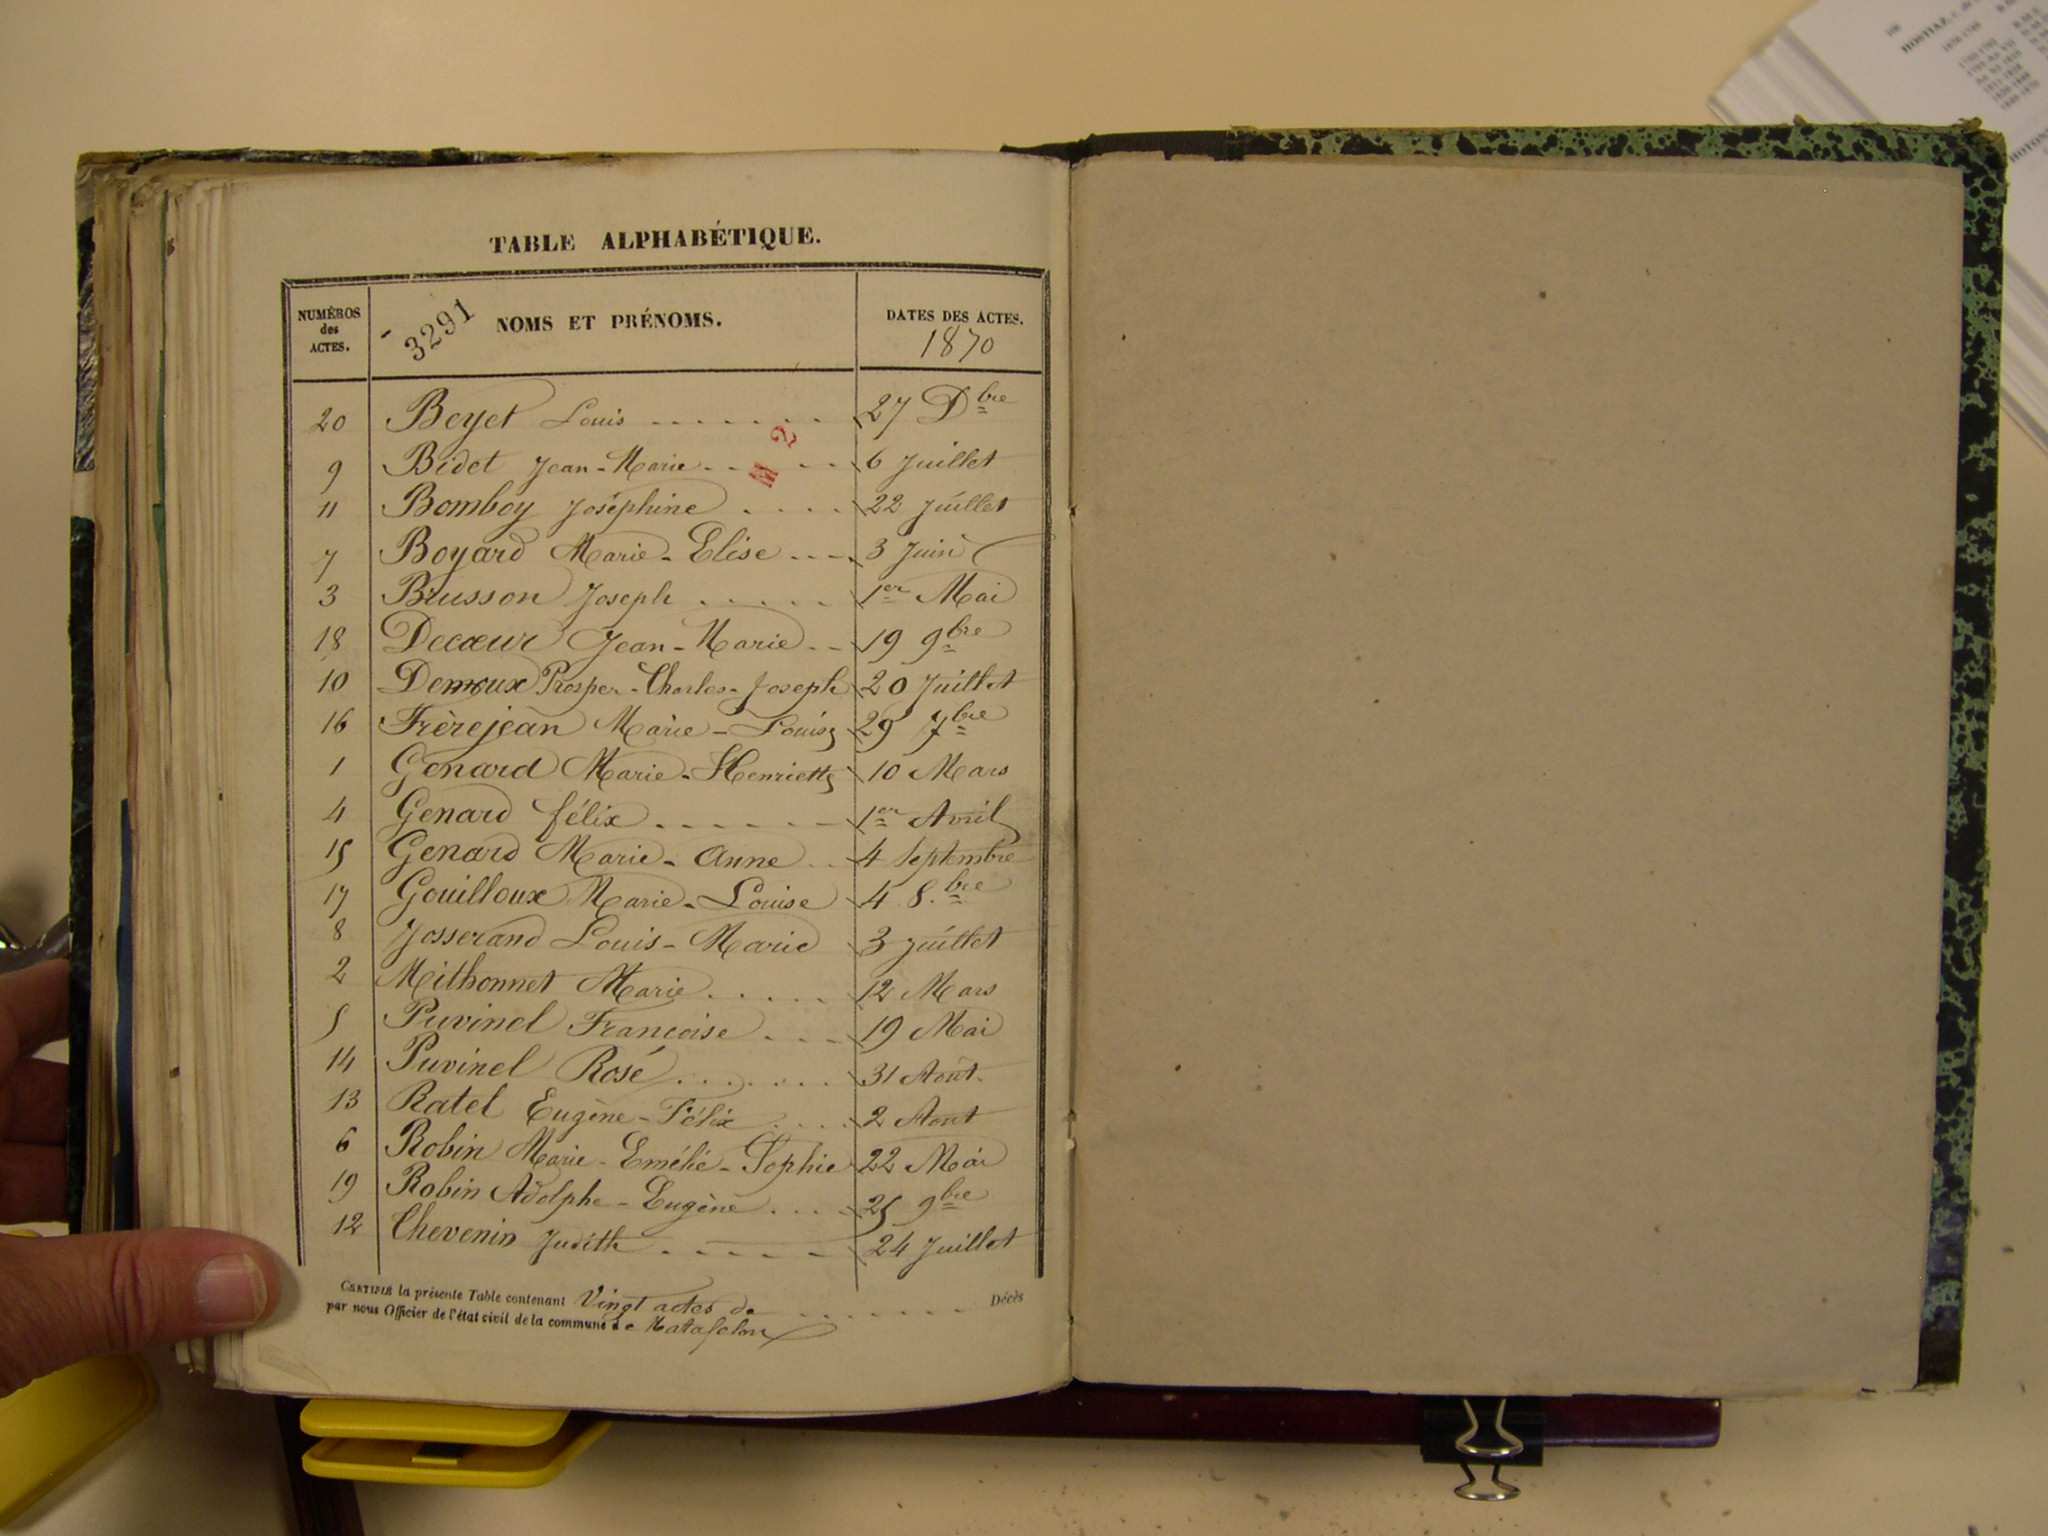 TABLE ALPHABÉTIQUE.
NUMÉROS des ACTES.
3291
NOMS ET PRÉNOMS.
DATES DES ACTES.
1870
M 2
20 Beyet Louis 27 Dbre
9 Bidet Jean-Marie 6 Juillet
11 Bomboy Joséphine 22 Juillet
7 Boyard Marie-Elise 3 Juin
3 Brusson Joseph 1er Mai
18 Decœur Jean-Marie 19 9bre
10 Demoux Prosper-Charles-Joseph 20 Juillet
16 Frèrejean Marie-Louise 29 7bre
1 Genard Marie-Henriette 10 Mars
4 Genard félix 1er Avril
15 Genard Marie-Anne 4 Septembre
17 Gouilloux Marie-Louise 4 8.bre
8 Josserand Louis-Marie 3 Juillet
2 Mithonnet Marie 12 Mars
5 Puvinel Francoise 19 Mai
14 Puvinel Rosé 31 Août
13 Ratel Eugène-Félix 2 Aout
6 Robin Marie-Emélie-Sophie 22 Mai
19 Robin Adolphe-Eugène 25 9bre
12 Chevenin Judith 24 Juillet
CERTIFIÉ la présente Table contenant Vingt actes de Décès
par nous Officier de l'état civil de la commune de Matafelon
HOSTIAZ,